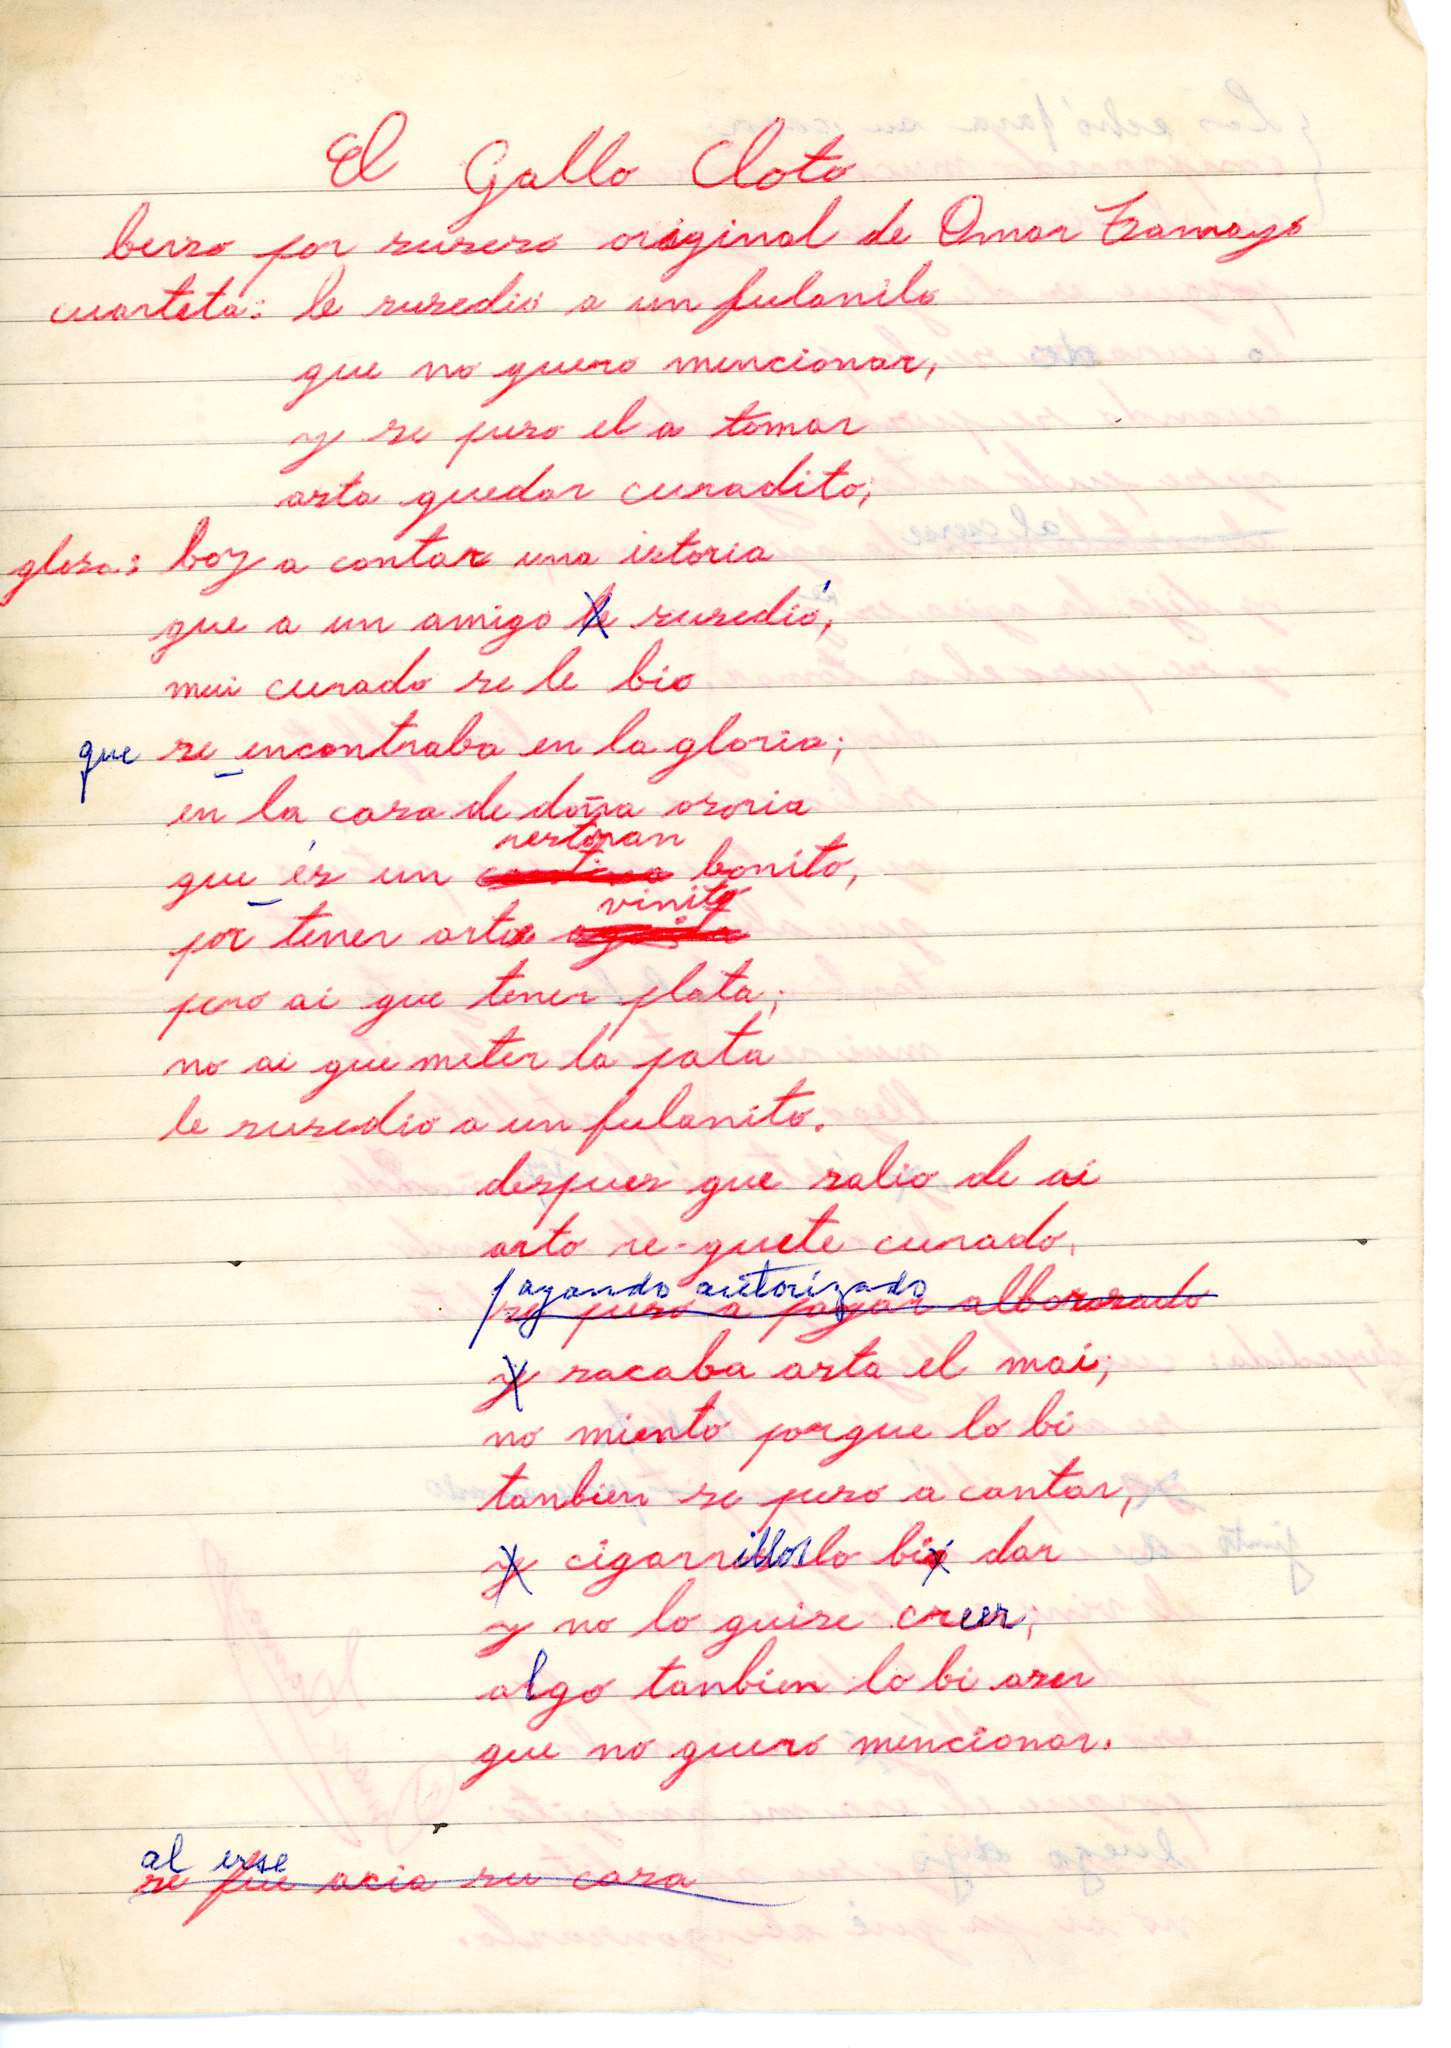 El Gallo Cloto
berso por suseso original de Omar Tramayo
cuarteta: le susedio a un fulanito
que no quero mencionar,
y se puso el a tomar
asta quedar curadito;
glosa: boy a contar una istoria
que a un amigo le susedió,
mui curado se le bio
que se encontraba en la gloria;
en la casa de doña osoria
restoran
que és un cantina bonito,
vinito
por tener arto
pero ai que tener plata;
no ai que meter la pata
le susedio a un fulanito.
despues que salio de ai
arto re-quete curado,
pagando autorizado
se puso a pagar alborosado
y sacaba asta el mai;
no miento porque lo bi
tanbien se puso a cantar,
y cigarrillos lo bi dar
y no lo quise creer,
algo tanbien lo bi aser
que no quero mencionar.
al erse
se fue acia su casa